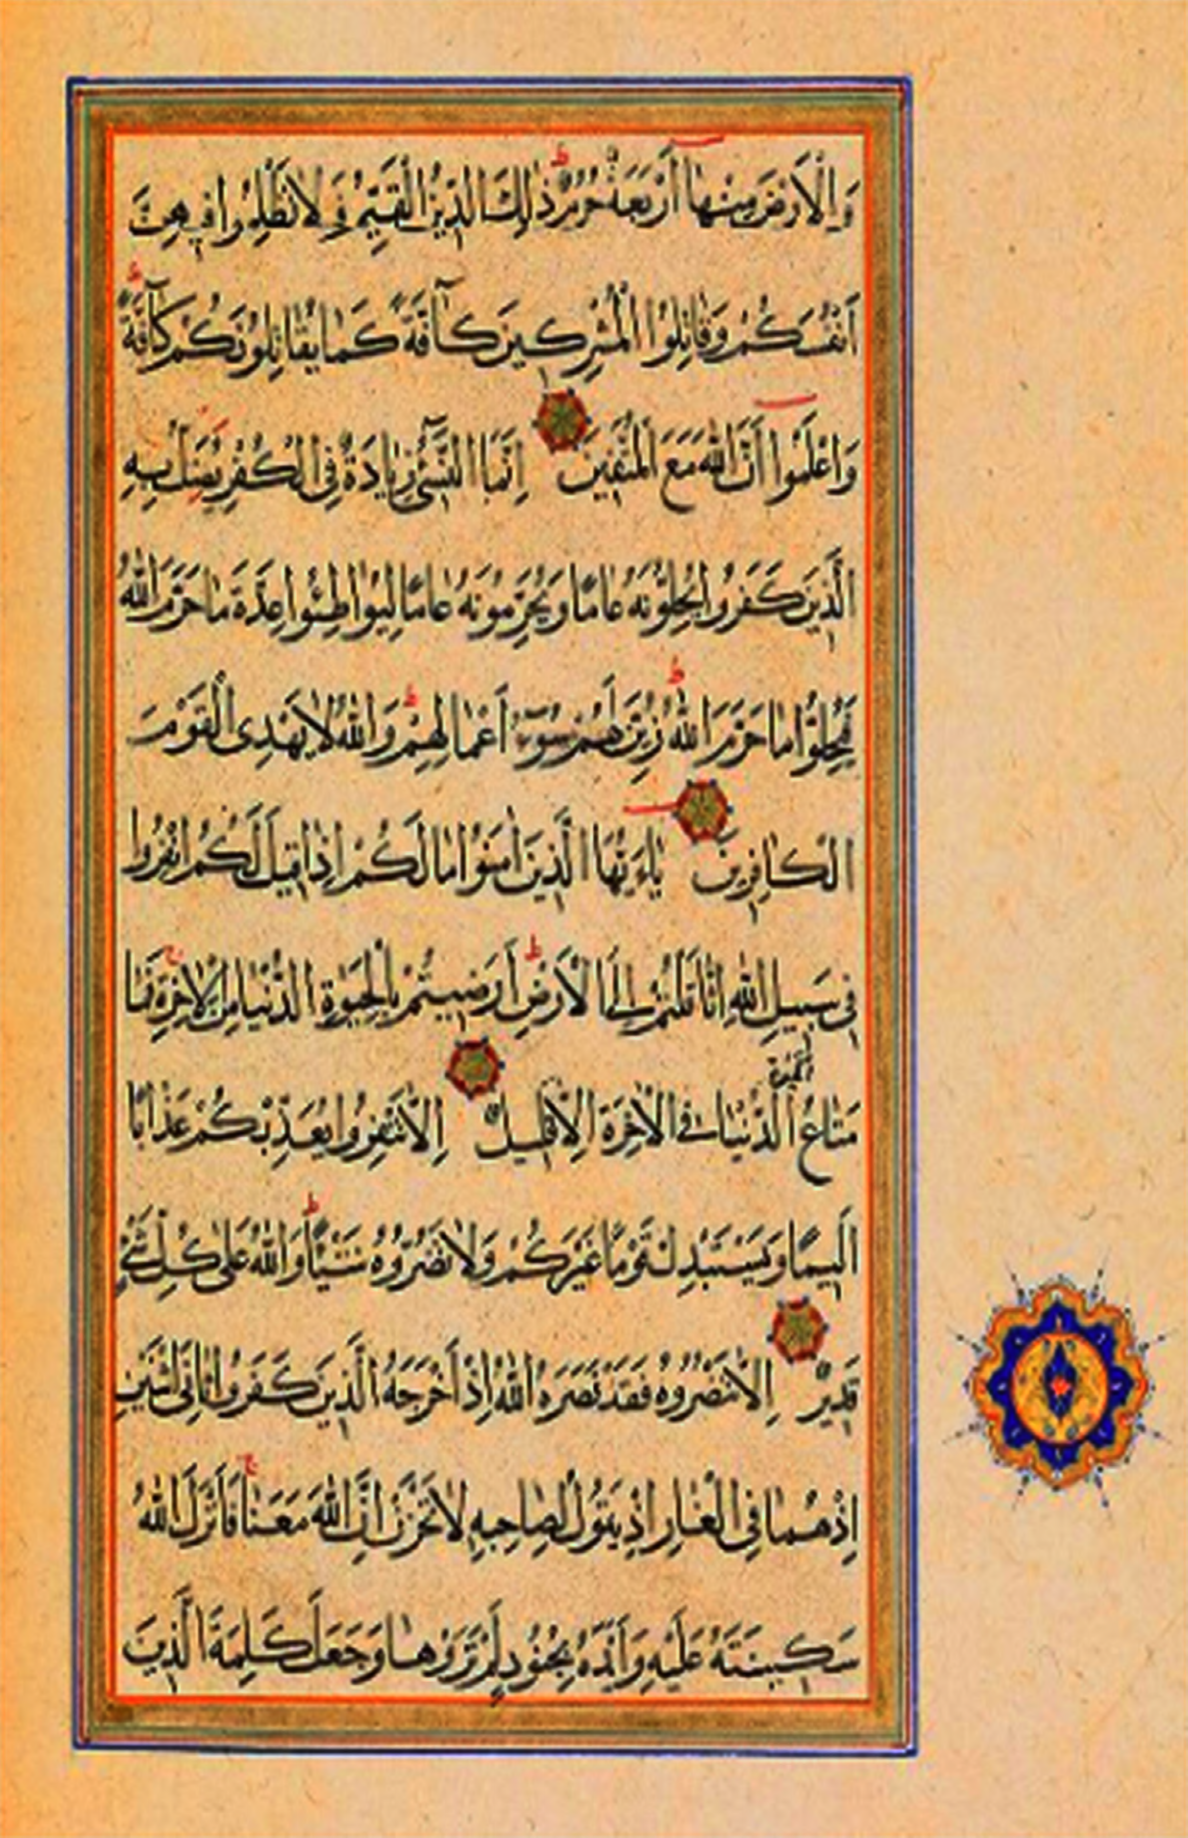 وَالْاَرْضَ مِنْهَا اَرْبَعَةٌ حُرُمٌ ذٰلِكَ الدِّينُ الْقَيِّمُ فَلَا تَظْلِمُوا فِيهِنَّ
اَنْفُسَكُمْ وَقَاتِلُوا الْمُشْرِكِينَ كَآفَّةً كَمَا يُقَاتِلُونَكُمْ كَآفَّةً
وَاعْلَمُوا اَنَّ اللّٰهَ مَعَ الْمُتَّقِينَ اِنَّمَا النَّسِىۤءُ زِيَادَةٌ فِى الْكُفْرِ يُضَلُّ بِهِ
الَّذِينَ كَفَرُوا يُحِلُّونَهُ عَامًا وَيُحَرِّمُونَهُ عَامًا لِيُوَاطِئُوا عِدَّةَ مَا حَرَّمَ اللّٰهُ
فَيُحِلُّوا مَا حَرَّمَ اللّٰهُ زُيِّنَ لَهُمْ سُوۤءُ اَعْمَالِهِمْ وَاللّٰهُ لَا يَهْدِى الْقَوْمَ
الْكَافِرِينَ يٰاَيُّهَا الَّذِينَ اٰمَنُوا مَا لَكُمْ اِذَا قِيلَ لَكُمُ انْفِرُوا
فِى سَبِيلِ اللّٰهِ اثَّاقَلْتُمْ اِلَى الْاَرْضِ اَرَضِيتُمْ بِالْحَيٰوةِ الدُّنْيَا مِنَ الْاٰخِرَةِ فَمَا
الْحَيٰوةِ
مَتَاعُ الدُّنْيَا فِى الْاٰخِرَةِ اِلَّا قَلِيلٌ اِلَّا تَنْفِرُوا يُعَذِّبْكُمْ عَذَابًا
اَلِيمًا وَيَسْتَبْدِلْ قَوْمًا غَيْرَكُمْ وَلَا تَضُرُّوهُ شَيْئًا وَاللّٰهُ عَلٰى كُلِّ شَىْءٍ
قَدِيرٌ اِلَّا تَنْصُرُوهُ فَقَدْ نَصَرَهُ اللّٰهُ اِذْ اَخْرَجَهُ الَّذِينَ كَفَرُوا ثَانِىَ اثْنَيْنِ
اِذْ هُمَا فِى الْغَارِ اِذْ يَقُولُ لِصَاحِبِهِ لَا تَحْزَنْ اِنَّ اللّٰهَ مَعَنَا فَاَنْزَلَ اللّٰهُ
سَكِينَتَهُ عَلَيْهِ وَاَيَّدَهُ بِجُنُودٍ لَمْ تَرَوْهَا وَجَعَلَ كَلِمَةَ الَّذِينَ